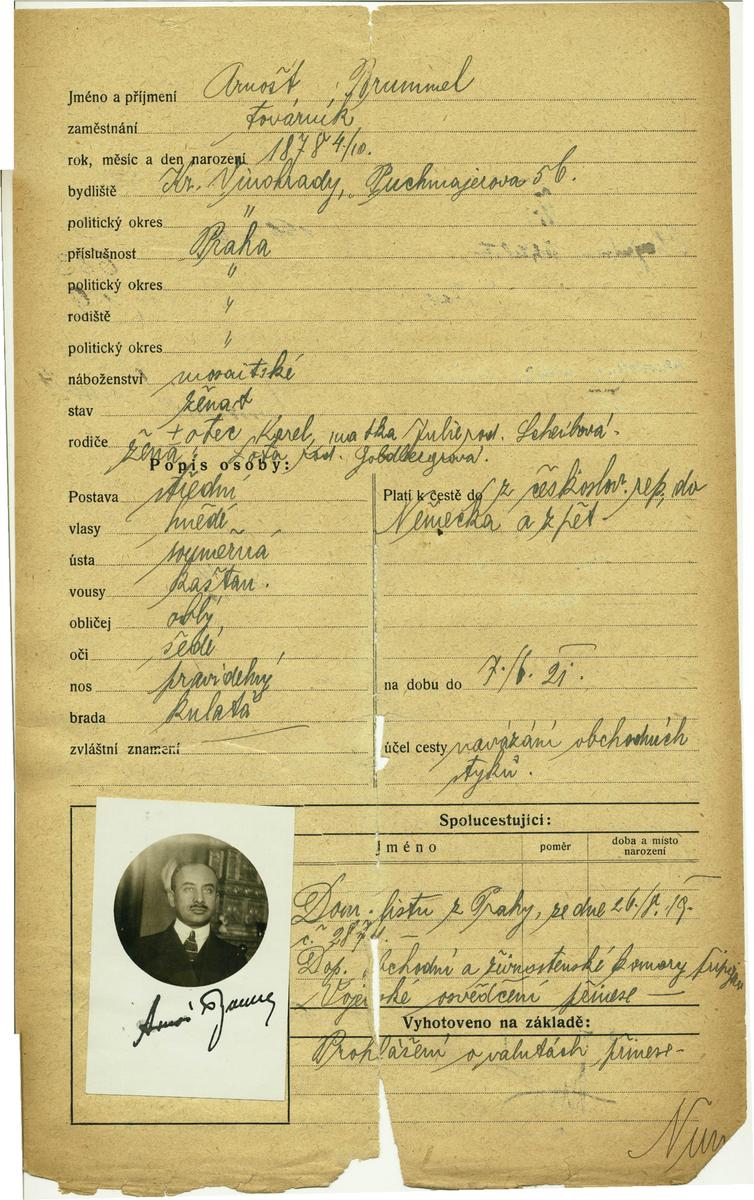 Jméno a příjmení Arnošt Brummel
zaměstnání továrník
rok, měsíc a den narození 1878 4/10.
bydliště Kr. Vinohrady, Puchmajerova 56.
politický okres "
příslušnost Praha
politický okres "
rodiště "
politický okres "
náboženství mosaitské
stav ženat
rodiče + otec Karel, matka Julie rod. Scheibová.
žena: rod. Goldbergrová.
Popis osoby:
Postava střední
vlasy hnědé
ústa souměrná
vousy kaštan.
obličej oblý
oči šedé
nos pravidelný
brada kulatá
zvláštní znamení
Platí k cestě do z českoslov. rep. do
Německa a zpět
na dobu do 7./6. 21.
účel cesty navázání obchodních
styků.
Spolucestující:
Jméno poměr doba a místo narození
Dom. listu z Prahy, ze dne 26./8. 19.
č.
Dop. obchodní a živnostenské komory
Vojenské osvědčení přinese
Vyhotoveno na základě:
Prohlášení o valutách přinese